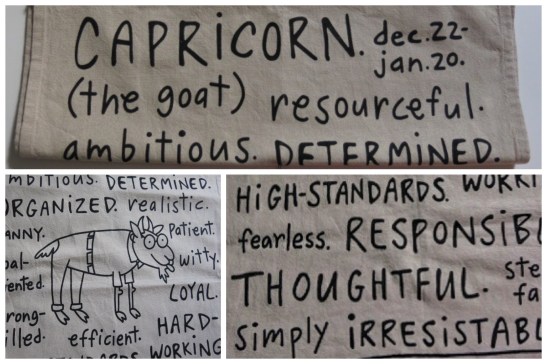 CAPRiCORN. dec.22-
jan.20.
(the goat) resourceful.
ambitious. DETERMINED.
mbitious. DETERMINED.
ORGANIZED. realistic.
ANNY. Patient.
oal- witty.
iented. LOYAL.
rong- HARD-
illed. efficient. WORKING
HiGH-STANDARDS. WORKI
fearless. RESPONSIB
THOUGHTFUL. ste
fa
simply iRRESiSTABL